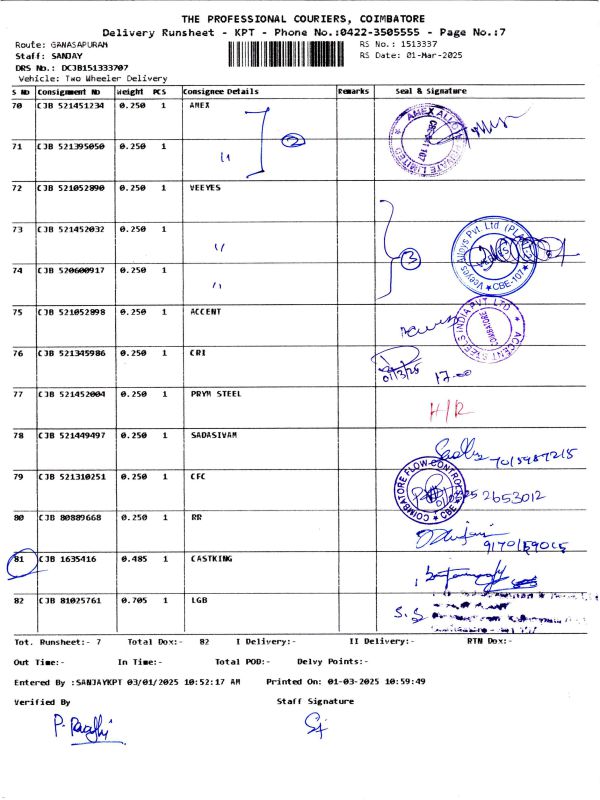 THE PROFESSIONAL COURIERS, COIMBATORE
Delivery Runsheet - KPT - Phone No.:0422-3505555 - Page No.:7
Route: GANASAPURAM RS No.: 1513337
Staff: SANJAY RS Date: 01-Mar-2025
DRS No.: DCJB151333707
Vehicle: Two Wheeler Delivery
S No Consignment No Weight PCS Consignee Details Remarks Seal & Signature
70 CJB 521451234 0.250 1 AMEX
2
71 CJB 521395050 0.250 1 "
72 CJB 521052890 0.250 1 VEEYES
73 CJB 521452032 0.250 1 "
3
74 CJB 520600917 0.250 1 "
75 CJB 521052898 0.250 1 ACCENT
ACCENT STEELS INDIA PVT. LTD
COIMBATORE
76 CJB 521345986 0.250 1 CRI
01/3/25 17-00
77 CJB 521452004 0.250 1 PRYM STEEL H/R
78 CJB 521449497 0.250 1 SADASIVAM
79 CJB 521310251 0.250 1 CFC 2653012
COIMBATORE FLOW-CONTROL
CBE
80 CJB 80889668 0.250 1 RR
81 CJB 1635416 0.485 1 CASTKING
82 CJB 81025761 0.705 1 LGB
Tot. Runsheet:- 7 Total Dox:- 82 I Delivery:- II Delivery:- RTN Dox:-
Out Time:- In Time:- Total POD:- Delvy Points:-
Entered By :SANJAYKPT 03/01/2025 10:52:17 AM Printed On: 01-03-2025 10:59:49
Verified By Staff Signature